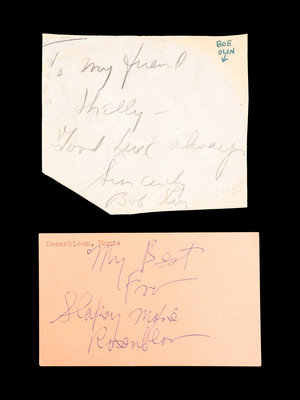 BOB
OLIN
↓
To My friend
Shelly —
Good Luck Always
Sincerely
Bob Olin
Rosenbloom, Maxie
My Best
From
Slapsy Maxie
Rosenbloom